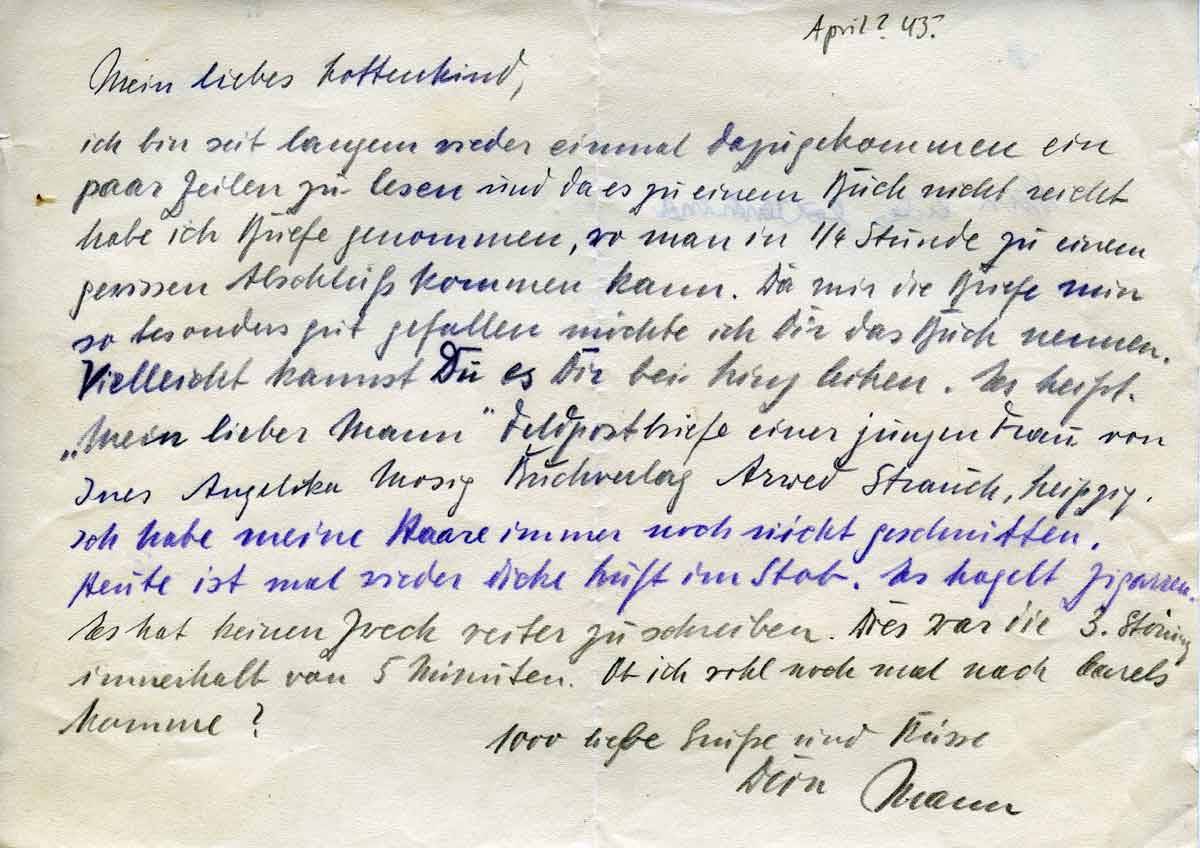 April? 43.
Mein liebes Lottenkind,
ich bin seit langem wieder einmal dazugekommen ein
paar Zeilen zu lesen und da es zu einem Buch nicht reicht
habe ich Briefe genommen, wo man in 1/4 Stunde zu einem
gewissen Abschluß kommen kann. Da mir die Briefe nun
so besonders gut gefallen möchte ich Dir das Buch nennen.
Vielleicht kannst Du es Dir bei leihen. Es heißt.
„Mein lieber Mann" Feldpostbriefe einer jungen Frau von
Ines Angelika Mosig Buchverlag Arwed Strauch, Leipzig.
Ich habe meine Haare immer noch nicht geschnitten.
Heute ist mal wieder dicke Luft im Stab. Es hagelt Zigarren.
Es hat keinen Zweck weiter zu schreiben. Dies war die 3. Störung
innerhalb von 5 Minuten. Ob ich wohl noch mal nach
komme?
1000 liebe Grüße und Küsse
Dein Mann